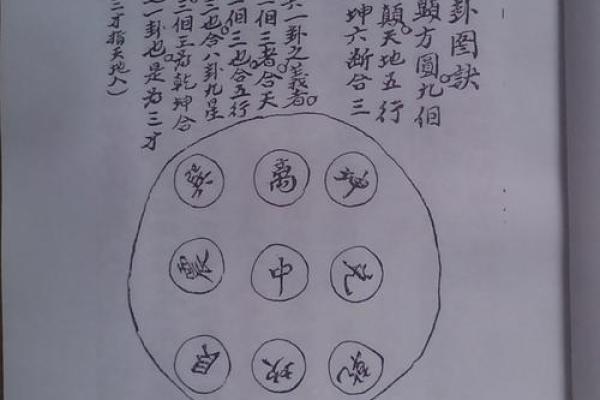 卦图訣
方圓九個
顛天地五行
坤六断合三
一卦之義者。
一個三者合天
個三也合五行
三也合八卦九星
個三為乾坤合
一卦也。是為三才
三才指天地人)
巽 離 坤
震 中 兌
艮 坎 乾